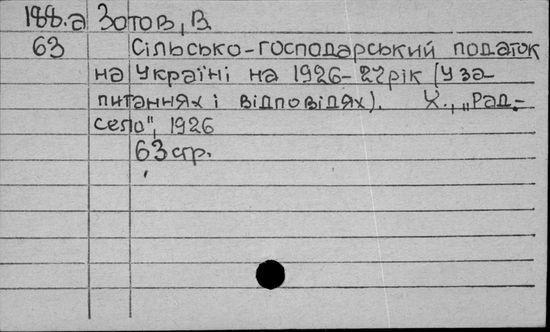 188.а Зотов, В.
63 Сільсько-господарський податок
на Україні на 1926-27 рік (У за-
питаннях і відповідях). Х., „Рад.-
село", 1926
63 стр.